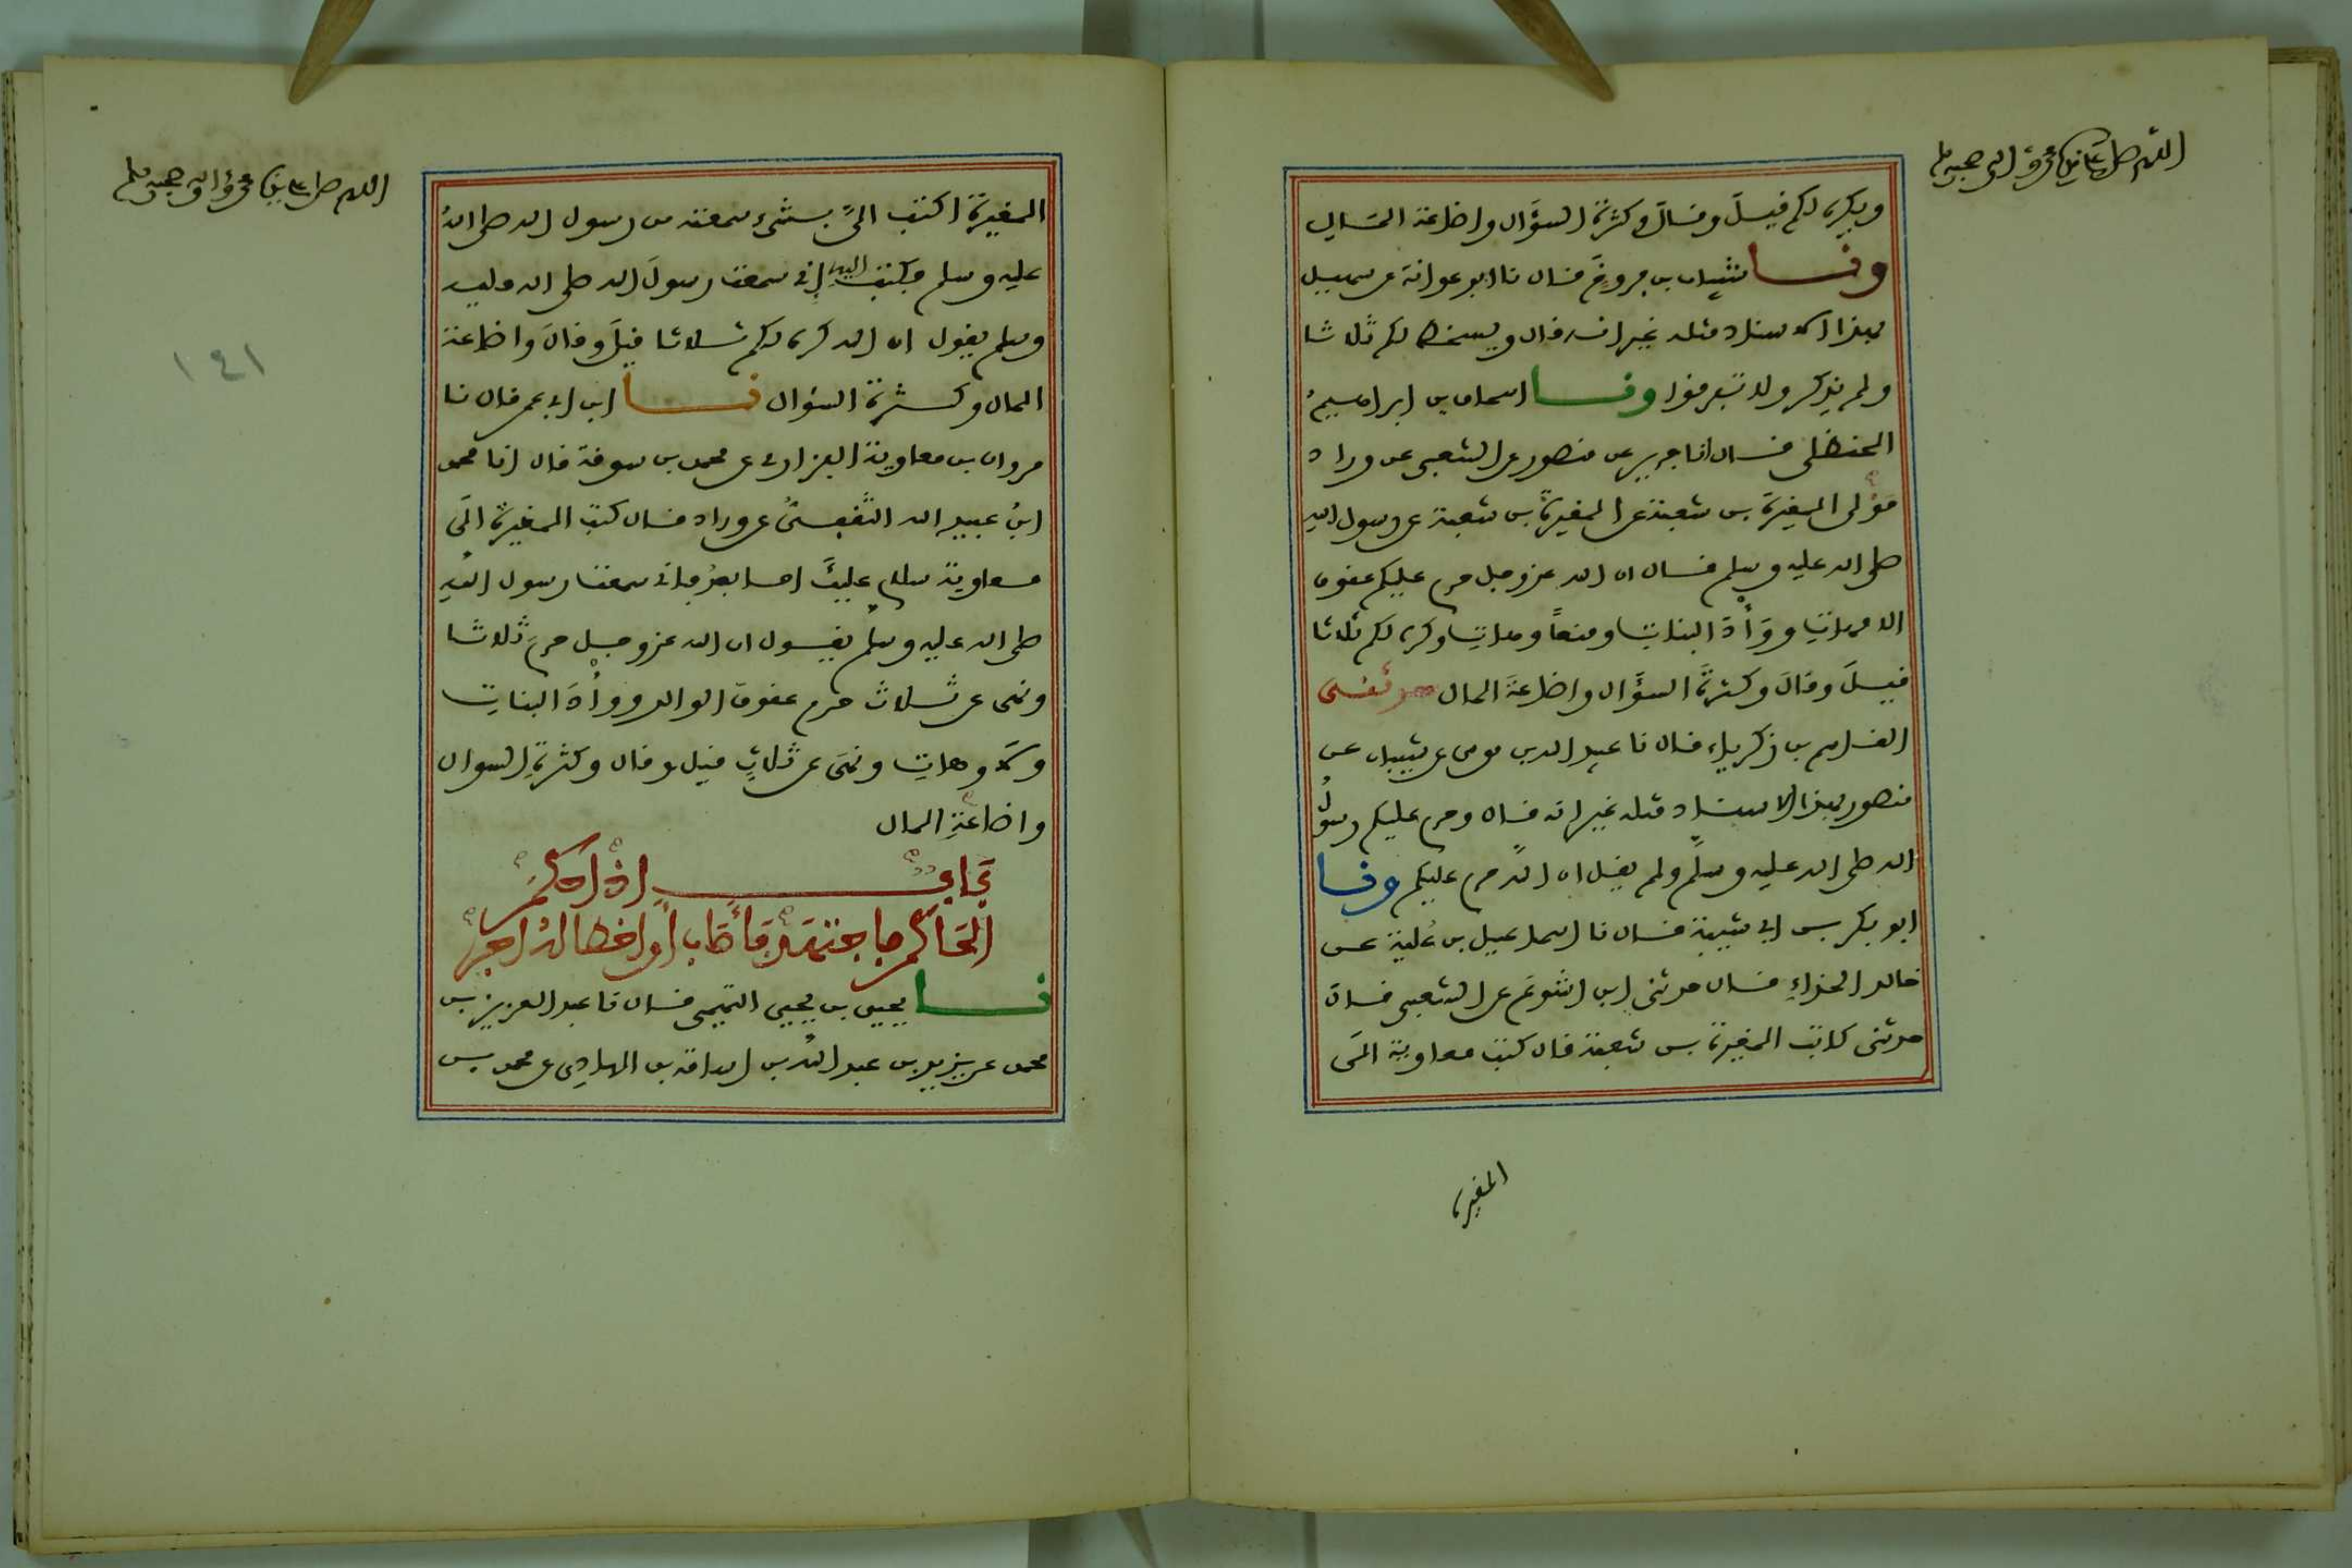 اللهم صل على نبينا محمد وآله وصحبه وسلم
ويكره لكم قيل وقال وكثرة السؤال واضاعة المال
ونا شيبان بن فروخ قال نا ابو عوانة عن سهيل
بهذا الاسناد مثله غير انه قال ويسخط لكم ثلاثا
ولم يذكر ولا تفرقوا ونا اسحاق بن ابراهيم
الحنظلي قال انا جرير عن منصور عن الشعبي عن وراد
مولى المغيرة بن شعبة عن المغيرة بن شعبة عن رسول الله
صلى الله عليه وسلم قال ان الله عز وجل حرم عليكم عقوق
الامهات ووأد البنات ومنعا وهات وكره لكم ثلاثا
قيل وقال وكثرة السؤال واضاعة المال حدثني
القاسم بن زكرياء قال نا عبيد الله بن موسى عن شيبان عن
منصور بهذا الاسناد مثله غير انه قال وحرم عليكم رسول
الله صلى الله عليه وسلم ولم يقل ان الله حرم عليكم ونا
ابو بكر بن ابي شيبة قال نا اسماعيل بن علية عن
خالد الحذاء قال حدثني ابن اشوع عن الشعبي قال
حدثني كاتب المغيرة بن شعبة قال كتب معاوية الى
المغيرة
اللهم صل على نبينا محمد وآله وصحبه وسلم
المغيرة اكتب الي بشيء سمعته من رسول الله صلى الله
عليه وسلم فكتب اليه اني سمعت رسول الله صلى الله عليه
وسلم يقول ان الله كره لكم ثلاثا قيل وقال واضاعة
المال وكثرة السؤال نا ابن ابي عمر قال نا
مروان بن معاوية الفزاري عن محمد بن سوقة قال انا محمد
ابن عبيد الله الثقفي عن وراد قال كتب المغيرة الى
معاوية سلام عليك اما بعد فاني سمعت رسول الله
صلى الله عليه وسلم يقول ان الله عز وجل حرم ثلاثا
ونهى عن ثلاث حرم عقوق الوالد ووأد البنات
ولا وهات ونهى عن ثلاث قيل وقال وكثرة السؤال
واضاعة المال
باب اذا حكم
الحاكم فاجتهد فأصاب أو اخطا له اجر
نا يحيى بن يحيى التميمي قال نا عبد العزيز بن
محمد عن يزيد بن عبد الله بن اسامة بن الهادي عن محمد بن
١٤١